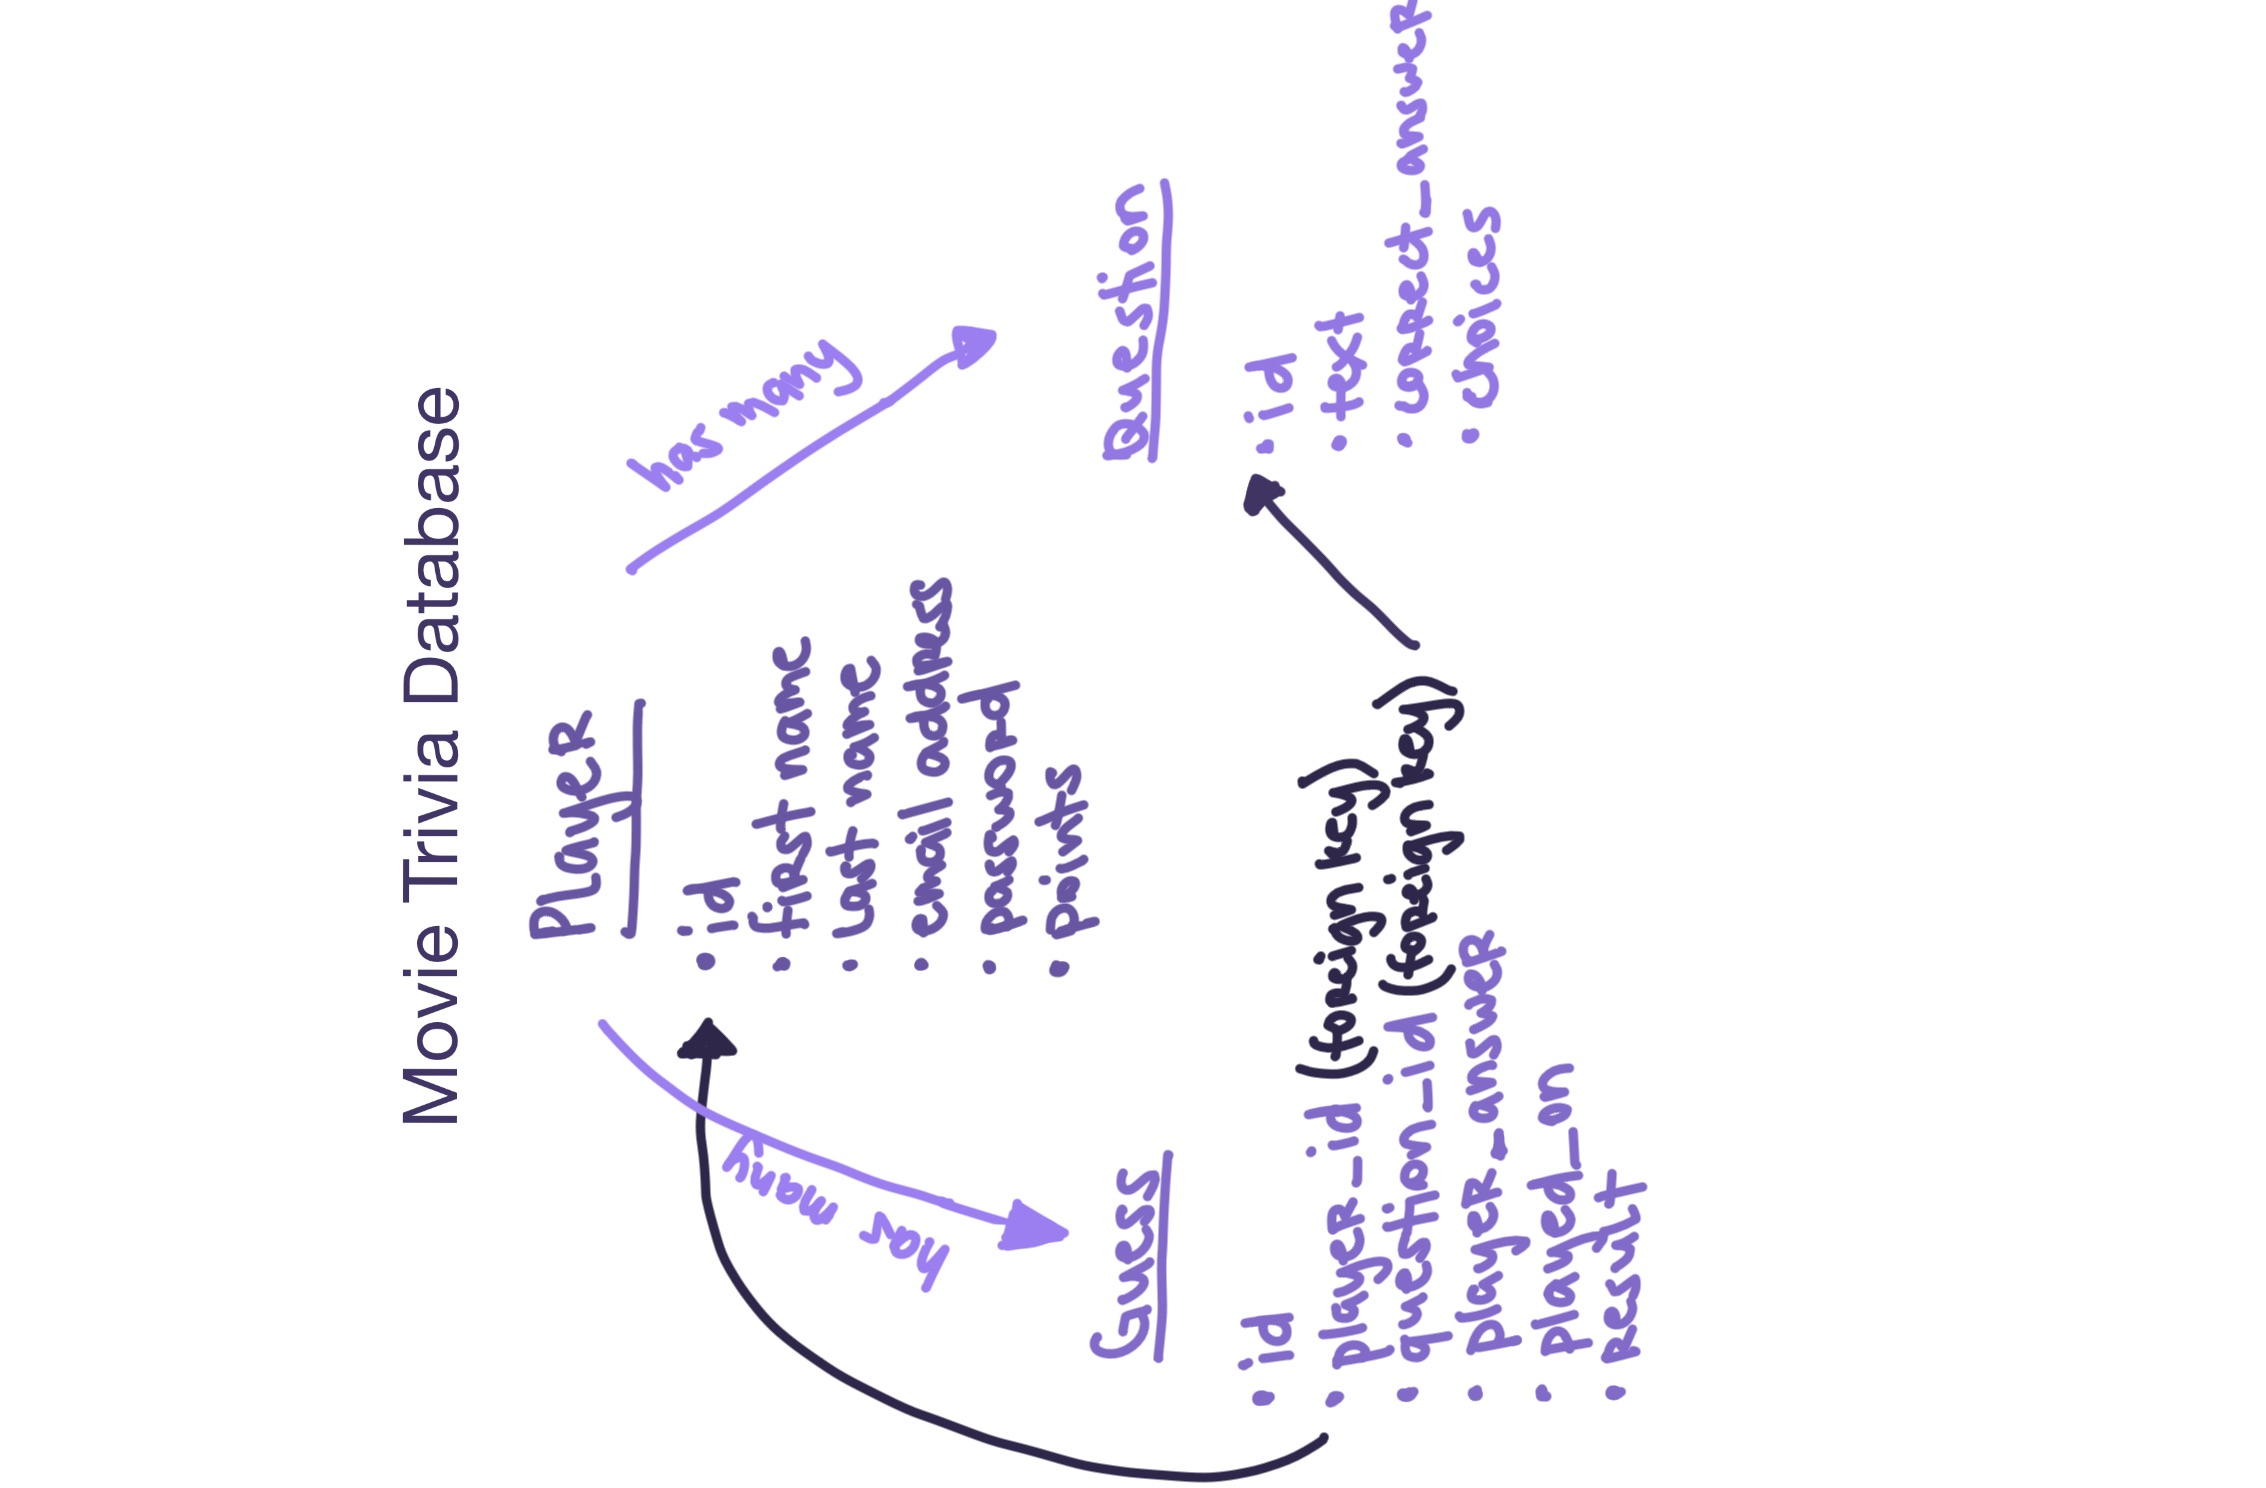 Movie Trivia Database
Player
has many
has many
• id
• first name
• last name
• email address
• password
• points
Guess
• id
• player_id (foreign key)
• question_id (foreign key)
• player_answer
• played_on
• result
Question
• id
• text
• correct_answer
• choices